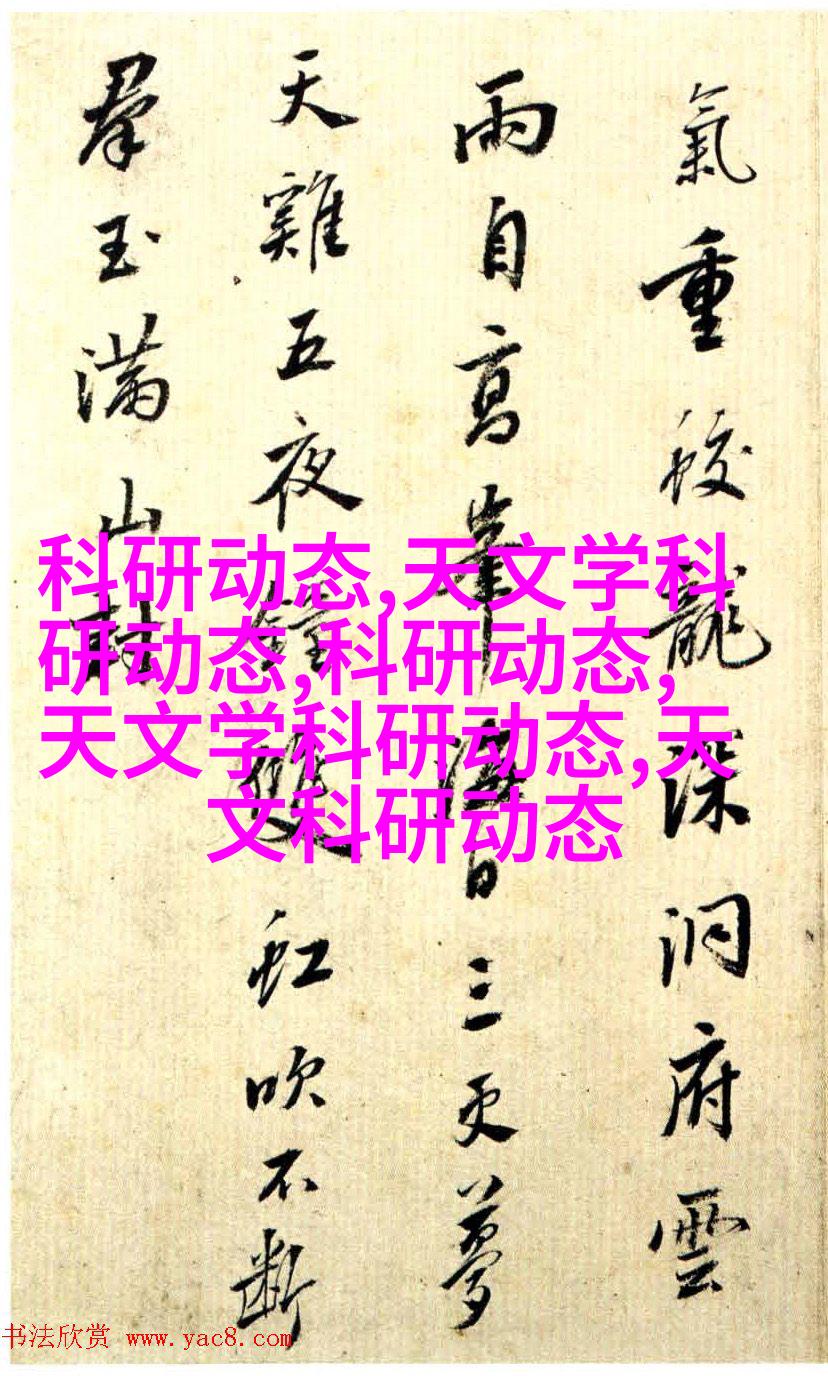 氣重蛟龍深洞府雲
雨自高峯日三更夢
天雞五夜雙虹吹不斷
羣玉滿山封
科研动态,天文学科
研动态,科研动态,
天文学科研动态,天
文科研动态
书法欣赏 www.yac8.com